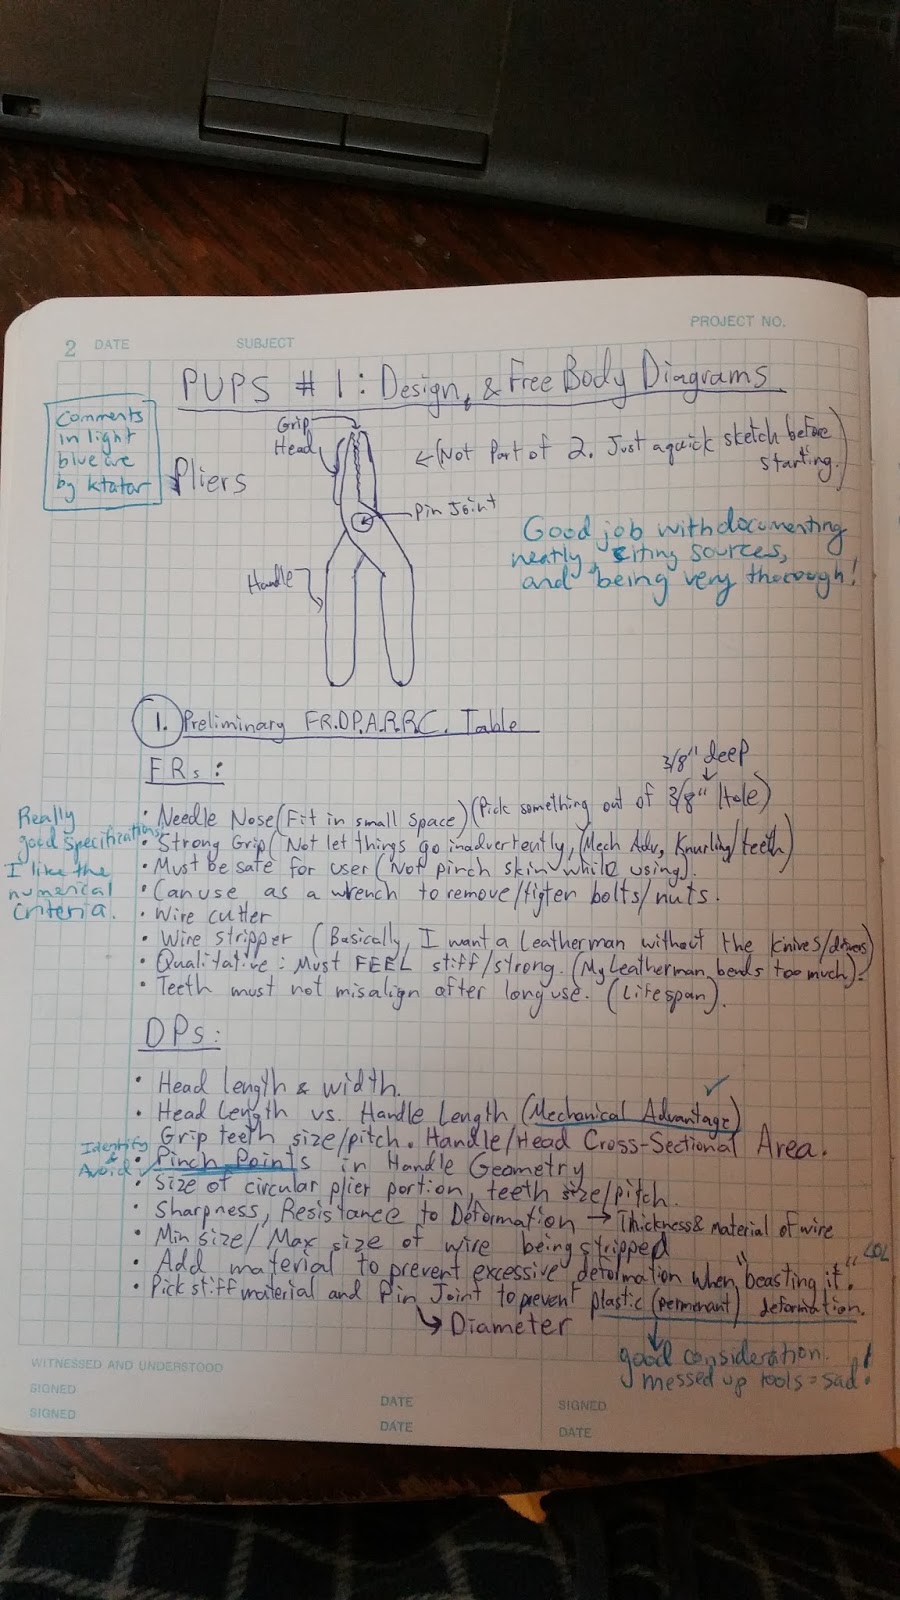 PROJECT NO.
2 DATE SUBJECT
PUPS # 1: Design, & Free Body Diagrams
Comments
in light
blue are
by ktatar
Pliers
Grip
Head
Pin Joint
Handle
← (Not Part of 2. Just a quick sketch before
starting.)
Good job with documenting
neatly, citing sources,
and being very thorough!
1. Preliminary FR.DP.A.R.R.C. Table
FRs:
3/8" deep
• Needle Nose (Fit in small space) (Pick something out of 3/8" Hole)
• Strong Grip (Not let things go inadvertently, (Mech Adv, Knurling/teeth)
• Must be safe for user (Not pinch skin while using).
• Can use as a wrench to remove/tigten bolts/nuts.
• Wire cutter
• Wire stripper (Basically, I want a Leatherman without the knives/drivers)
• Qualitative: Must FEEL stiff/strong. (My Leatherman bends too much).
• Teeth must not misalign after long use. (Lifespan).
Really
good specifications!
I like the
numerical
criteria.
DPs:
• Head length & width.
• Head Length vs. Handle Length (Mechanical Advantage) ✓
Grip teeth size/pitch. Handle/Head Cross-Sectional Area.
• Pinch Points in Handle Geometry
Identify
&
Avoid ✓
• Size of circular plier portion, teeth size/pitch.
• Sharpness, Resistance to Deformation → Thickness & material of wire
• Min size/Max size of wire being stripped
• Add material to prevent excessive deformation when "beasting it".
LOL
• Pick stiff material and Pin Joint to prevent plastic (permenant) deformation.
↳ Diameter
good consideration.
messed up tools = sad!
WITNESSED AND UNDERSTOOD
SIGNED DATE SIGNED
SIGNED DATE DATE